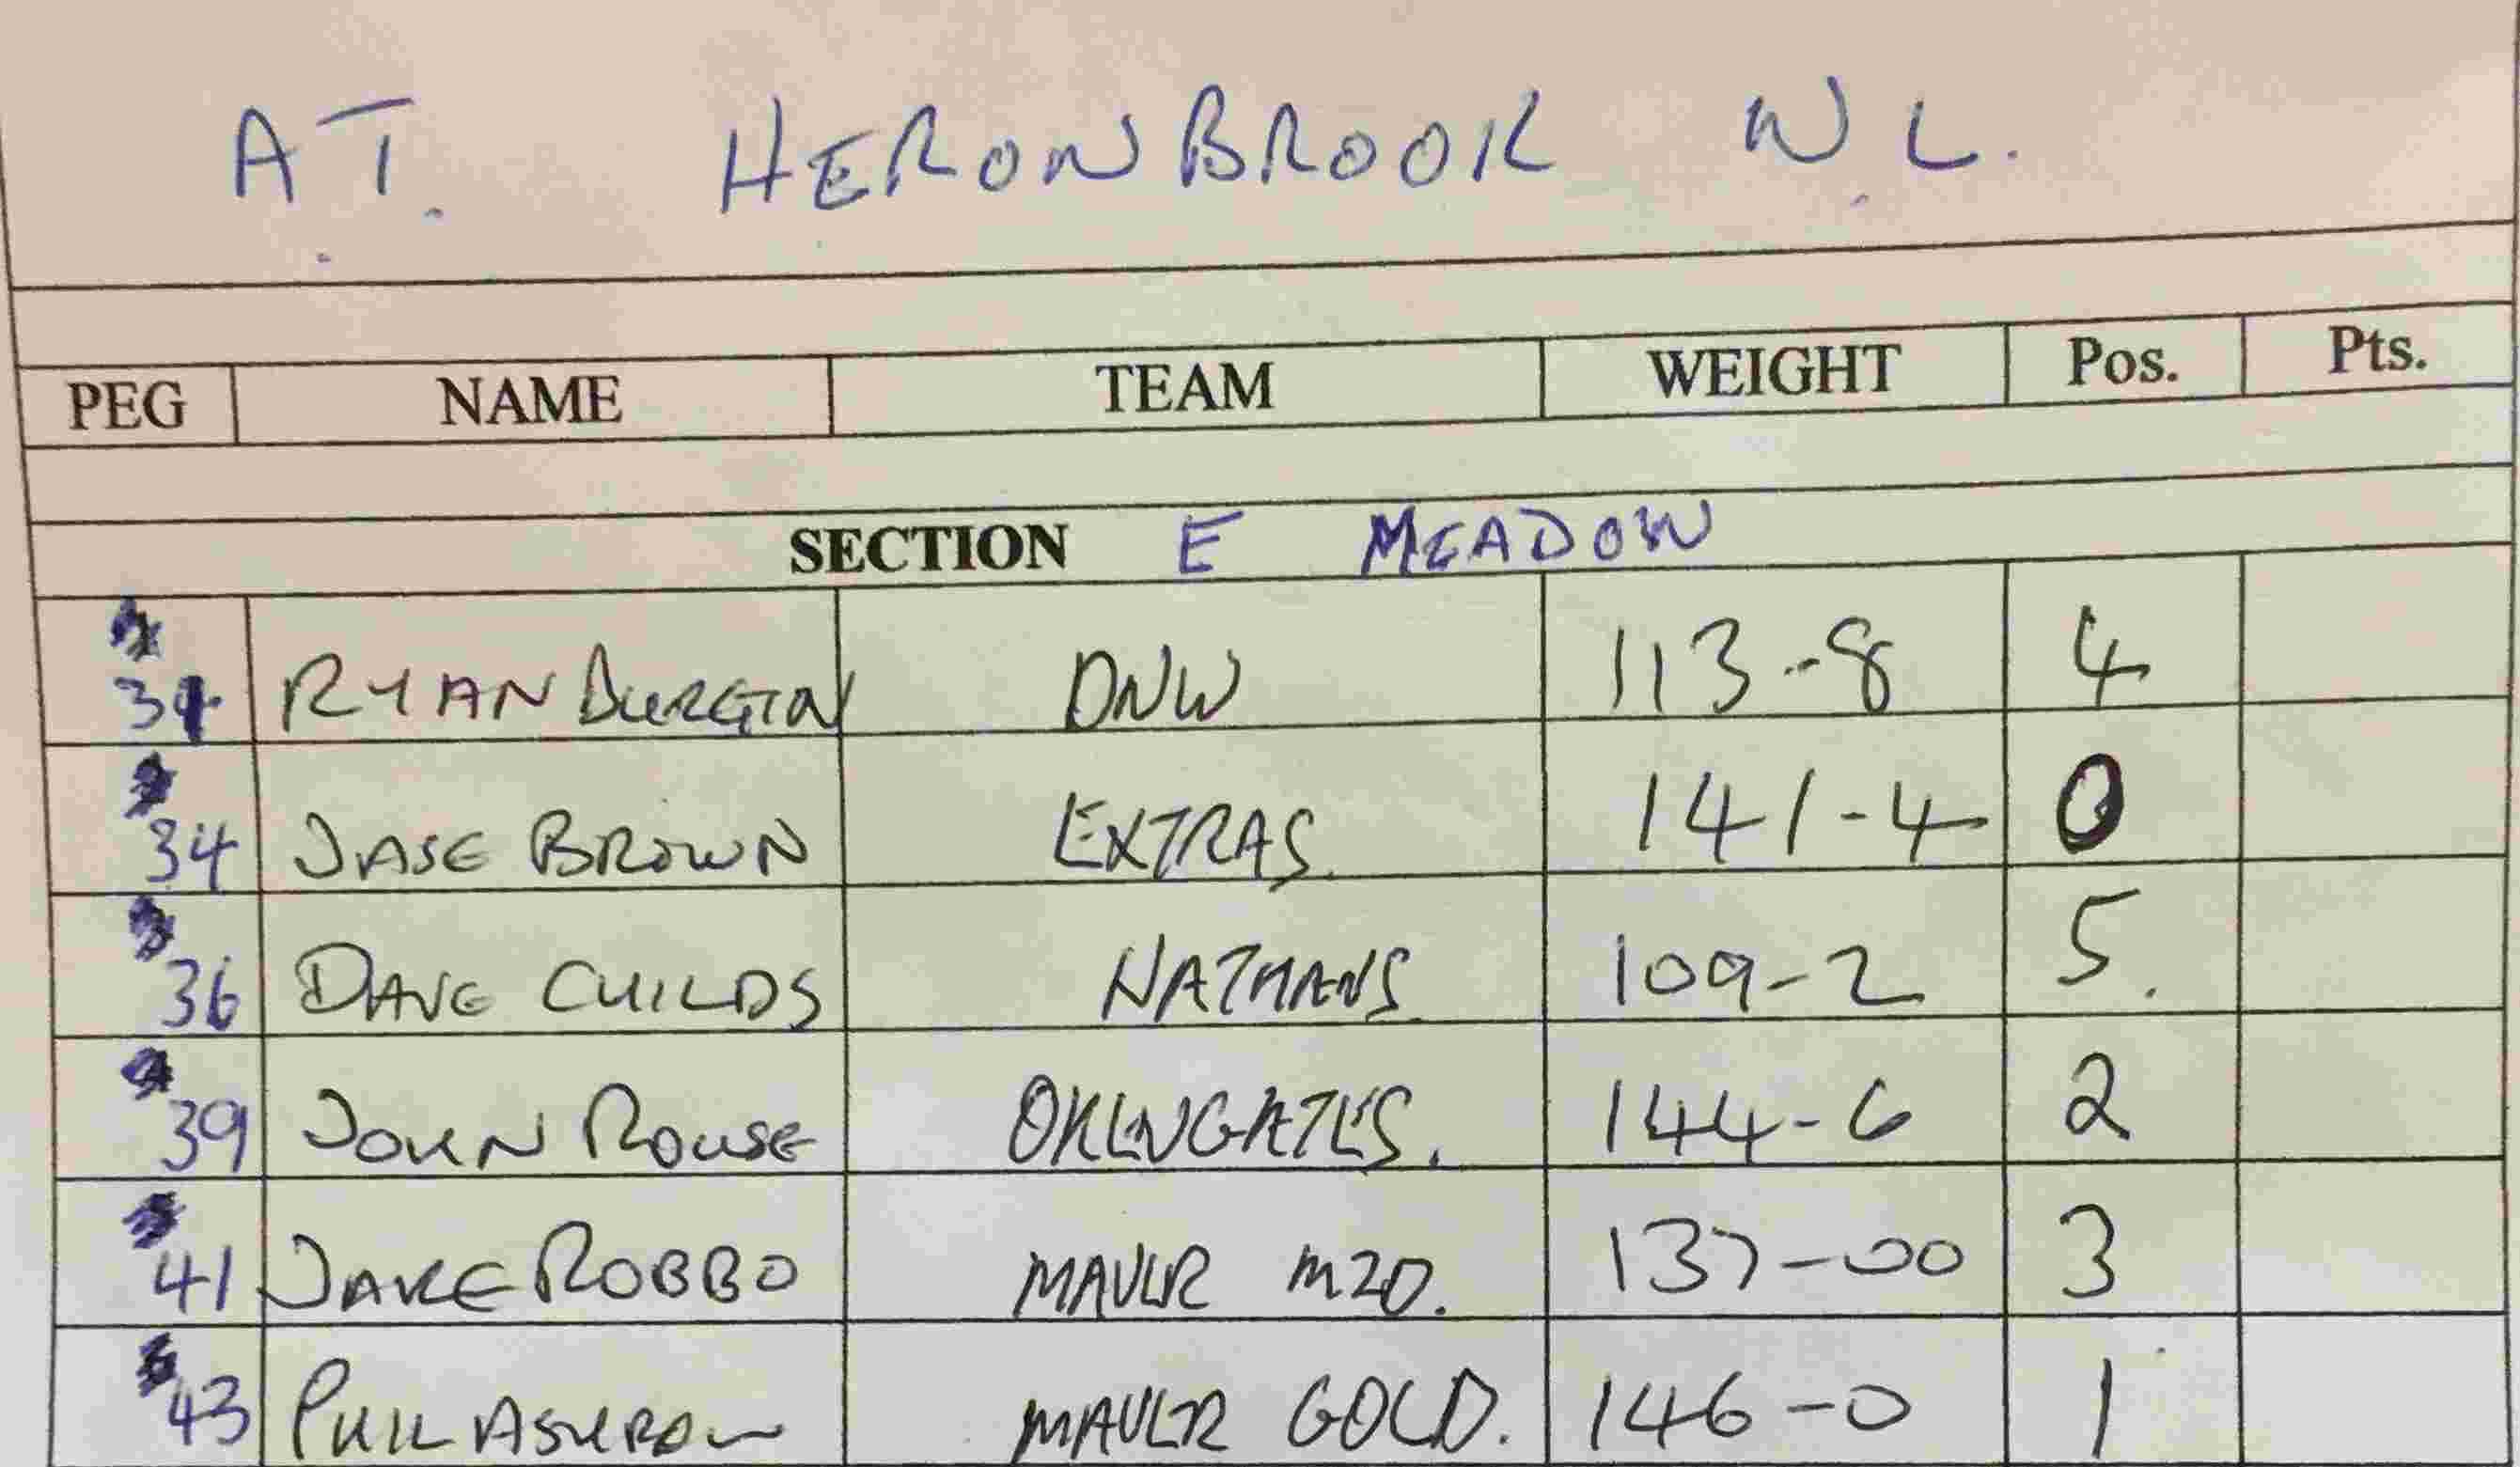 AT. HERONBROOK N.L.
PEG NAME TEAM WEIGHT Pos. Pts.
SECTION E MEADOW
RYAN BURGIN DNW 113-8 4
34 JASE BROWN EXTRAS. 141-4 0
36 DAVE CHILDS NATHANS. 109-2 5.
39 JOHN ROUSE OKENGATES. 144-6 2
41 JAKE ROBBO MAVER M20. 137-00 3
43 PHIL MAVER GOLD. 146-0 1